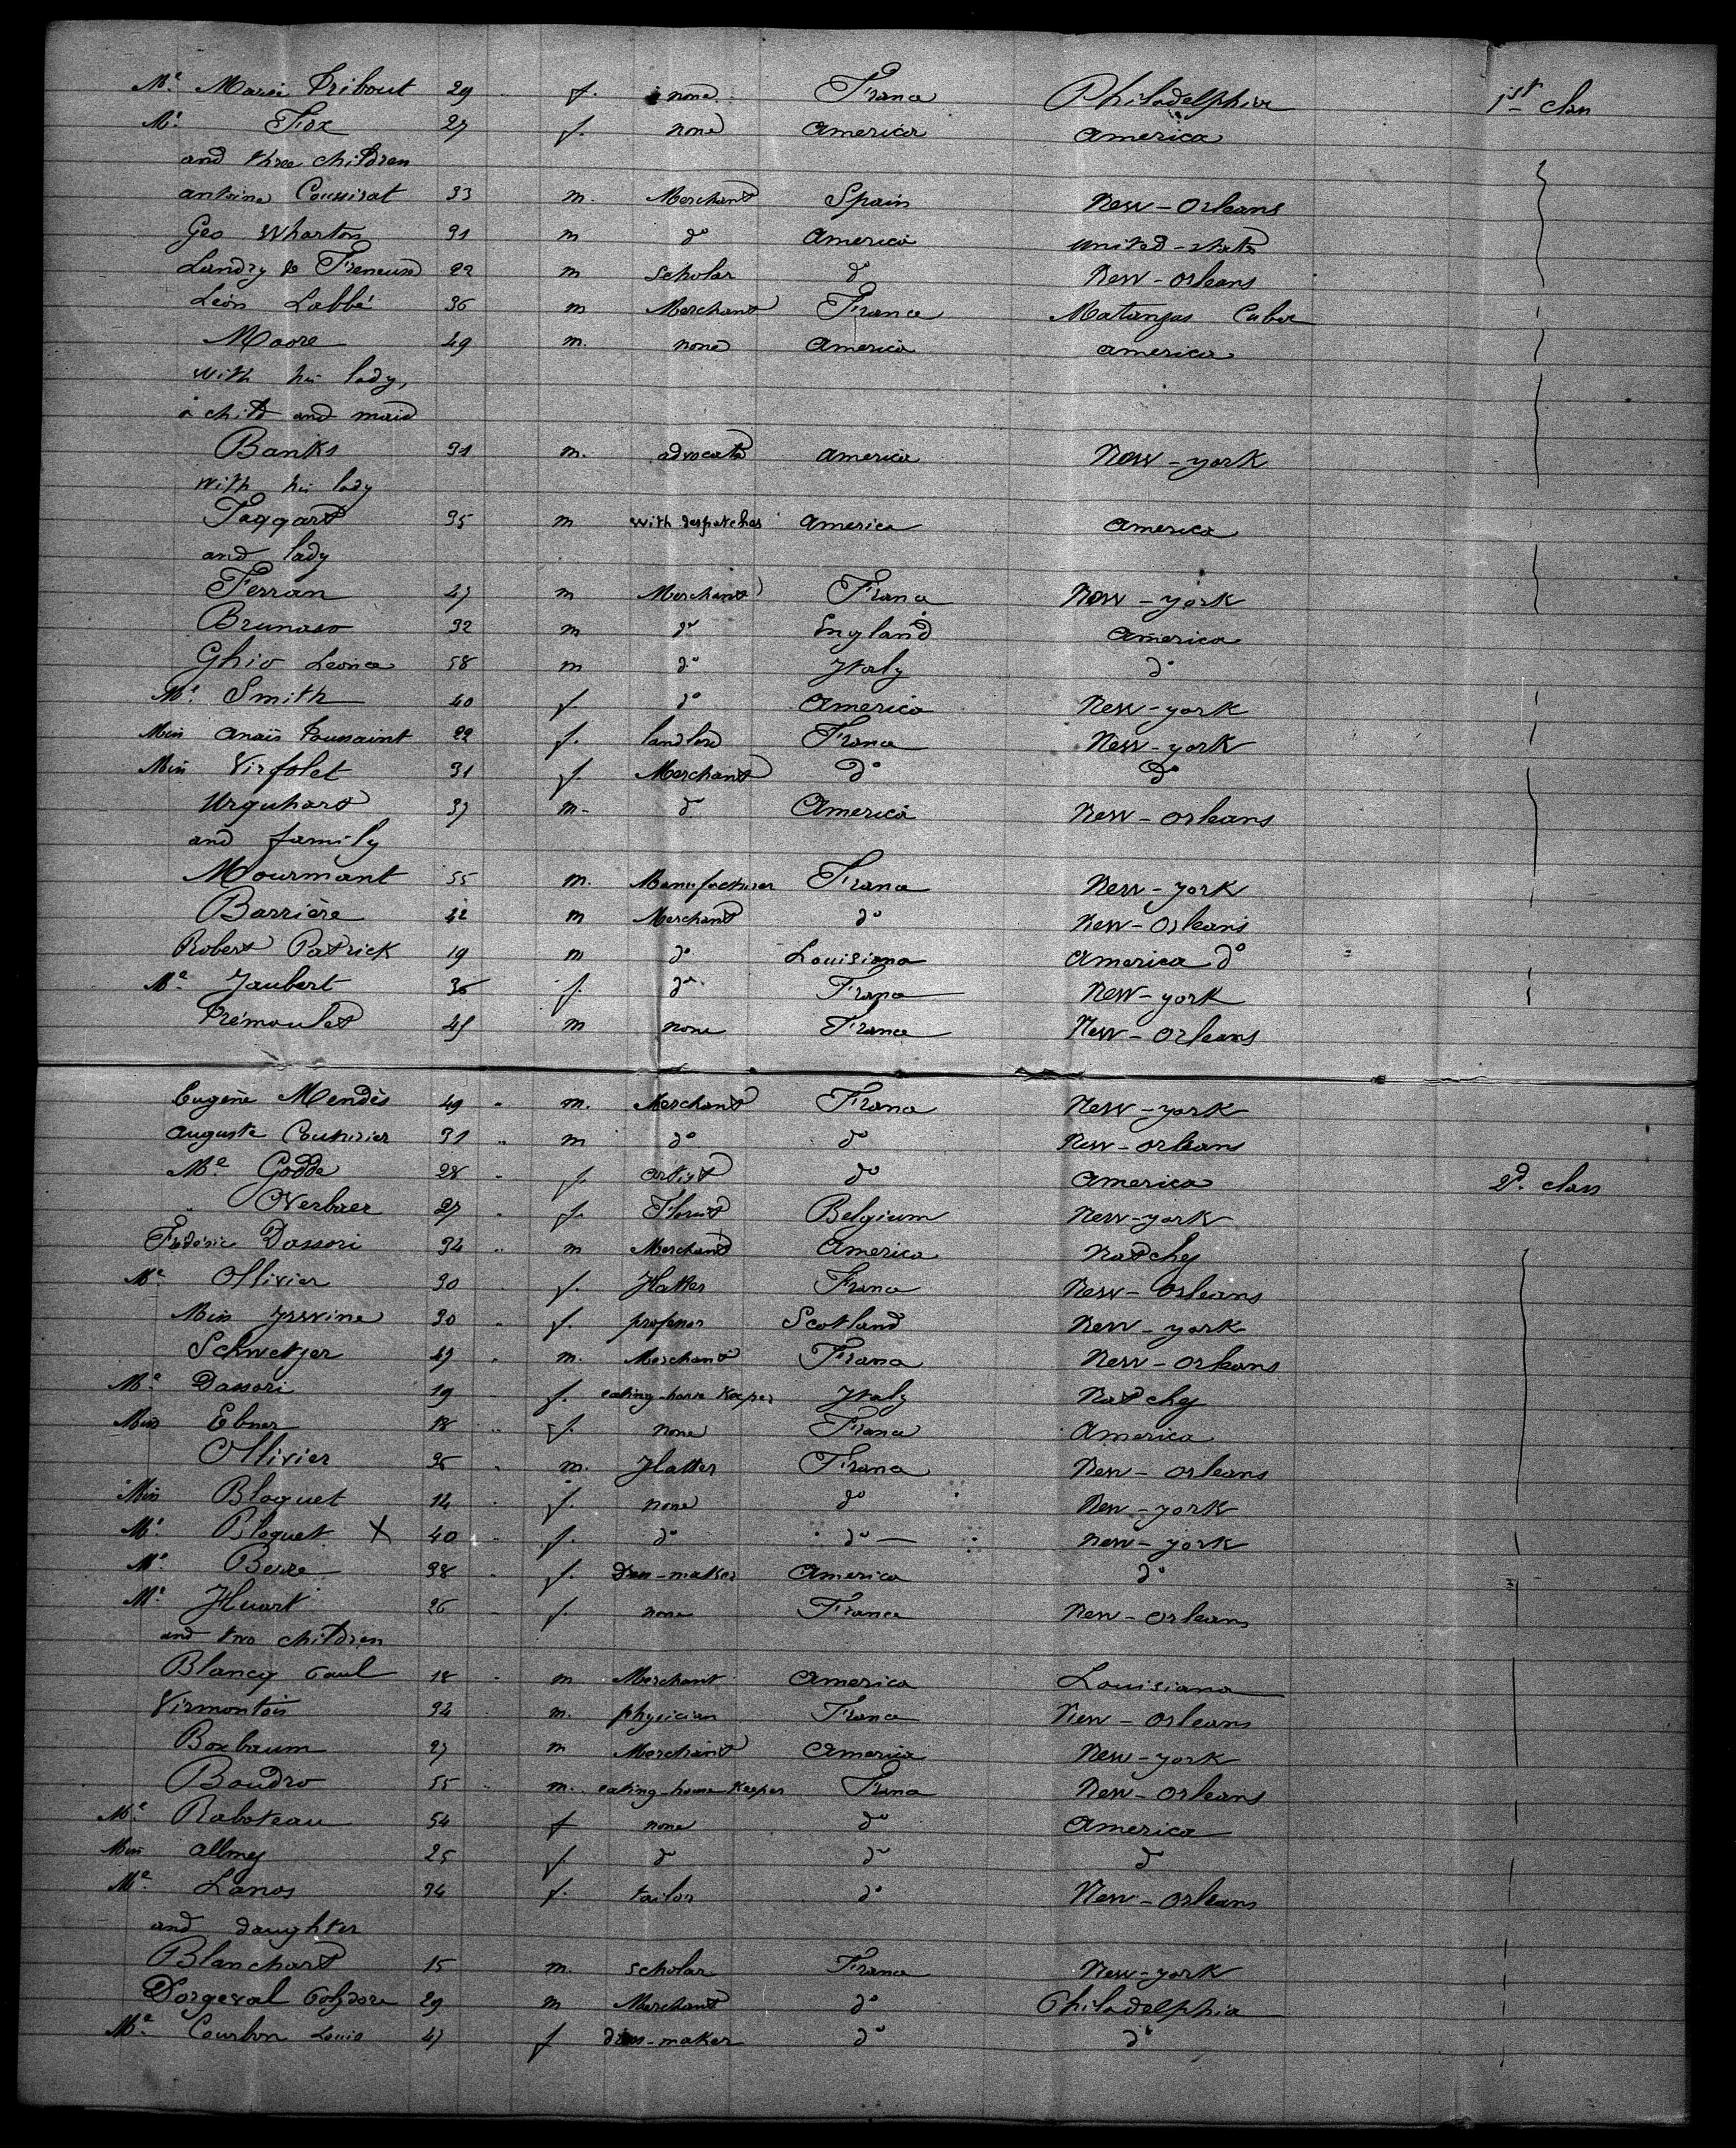 Me. Marie Tribout 29 f. none France Philadelphia 1st class
Me. Fox 27 f. none America America
and three children
antoine Coussirat 33 m. Merchant Spain New-Orleans
Geo Wharton 31 m do America United-states
Landry de Freneuse 22 m scholar do New-Orleans
Léon Labbé 36 m Merchant France Matanzas Cuba
Moore 49 m. none America america
with his lady,
a child and maid
Banks 31 m. advocate america New-york
with his lady
Taggart 35 m with despatches America America
and lady
Ferran 27 m Merchant France New-york
32 m do England America
Ghio Leonce 58 m do Italy do
Me. Smith 40 f. do America New-york
Miss Anaïs Toussaint 22 f. landlord France New-york
Miss Virfolet 31 f. Merchant do do
Urquhart 37 m. do America New-Orleans
and family
Mourmant 55 m. Manufacturer France New-york
Barrière 42 m Merchant do New-Orleans
Robert Patrick 19 m do Louisiana America do
Me. Jaubert 36 f. do France New-york
Trémoulet 45 m none France New-Orleans
Eugène Mendès 49 m. Merchant France New-york
Auguste 31 m do do New-orleans
Me. Godde 28 f. artist do America 2d. class
" Verbaer 27 f. Florist Belgium New-york
Fréderic Dassori 34 m Merchant America Natchy
Me. Ollivier 30 f. Hatter France New-Orleans
Miss Yrwine 30 f. professor Scotland New-york
Schwetzer 47 m. Merchant France New-Orleans
Me. Dassori 19 f. eating-house Keeper Italy Natchy
Miss Ebner 18 f. none France America
Ollivier 36 m. Hatter France New-Orleans
Miss Bloquet 14 f. none do New-york
Me. Bloquet X 40 f. do do New-york
Me. 38 f. dress-maker America do
Me. Huart 26 f. none France New-Orleans
and two children
Blancq Paul 18 m Merchant America Louisiana
Virmontois 34 m. physician France New-Orleans
Boxbaum 27 m Merchant America New-york
Boudro 55 m. eating-house Keeper France New-Orleans
Me. Raboteau 54 f none do America
Miss allmey 25 f. do do do
Me. Lanos 34 f. tailor do New-Orleans
and daughter
Blanchard 15 m. scholar France New-york
Dorgeval Polydore 29 m Merchant do Philadelphia
Me. Courbon Louis 47 f dress-maker do do